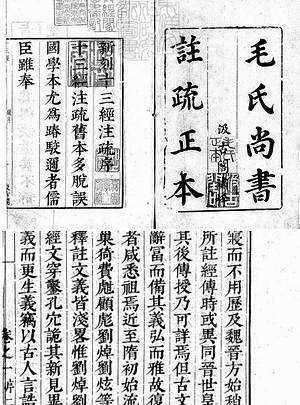 毛氏尚書
註疏正本
汲
新刻十三經注疏序
十三經注疏舊本多脫誤
國學本尤為踳駁邇者儒
臣雖奉
寢而不用歷及魏晉方始稍
所註經傳時或異同晉世皇
其後傳授乃可詳焉但古文
辭富而備其義弘而雅故復
者咸悉祖焉近至隋初始流
巢猗費甝顧彪劉焯劉炫等
釋註文義皆淺略惟劉焯劉
經文穿鑿孔穴詭其新見異
義而更生義竊以古人言誥
卷之一